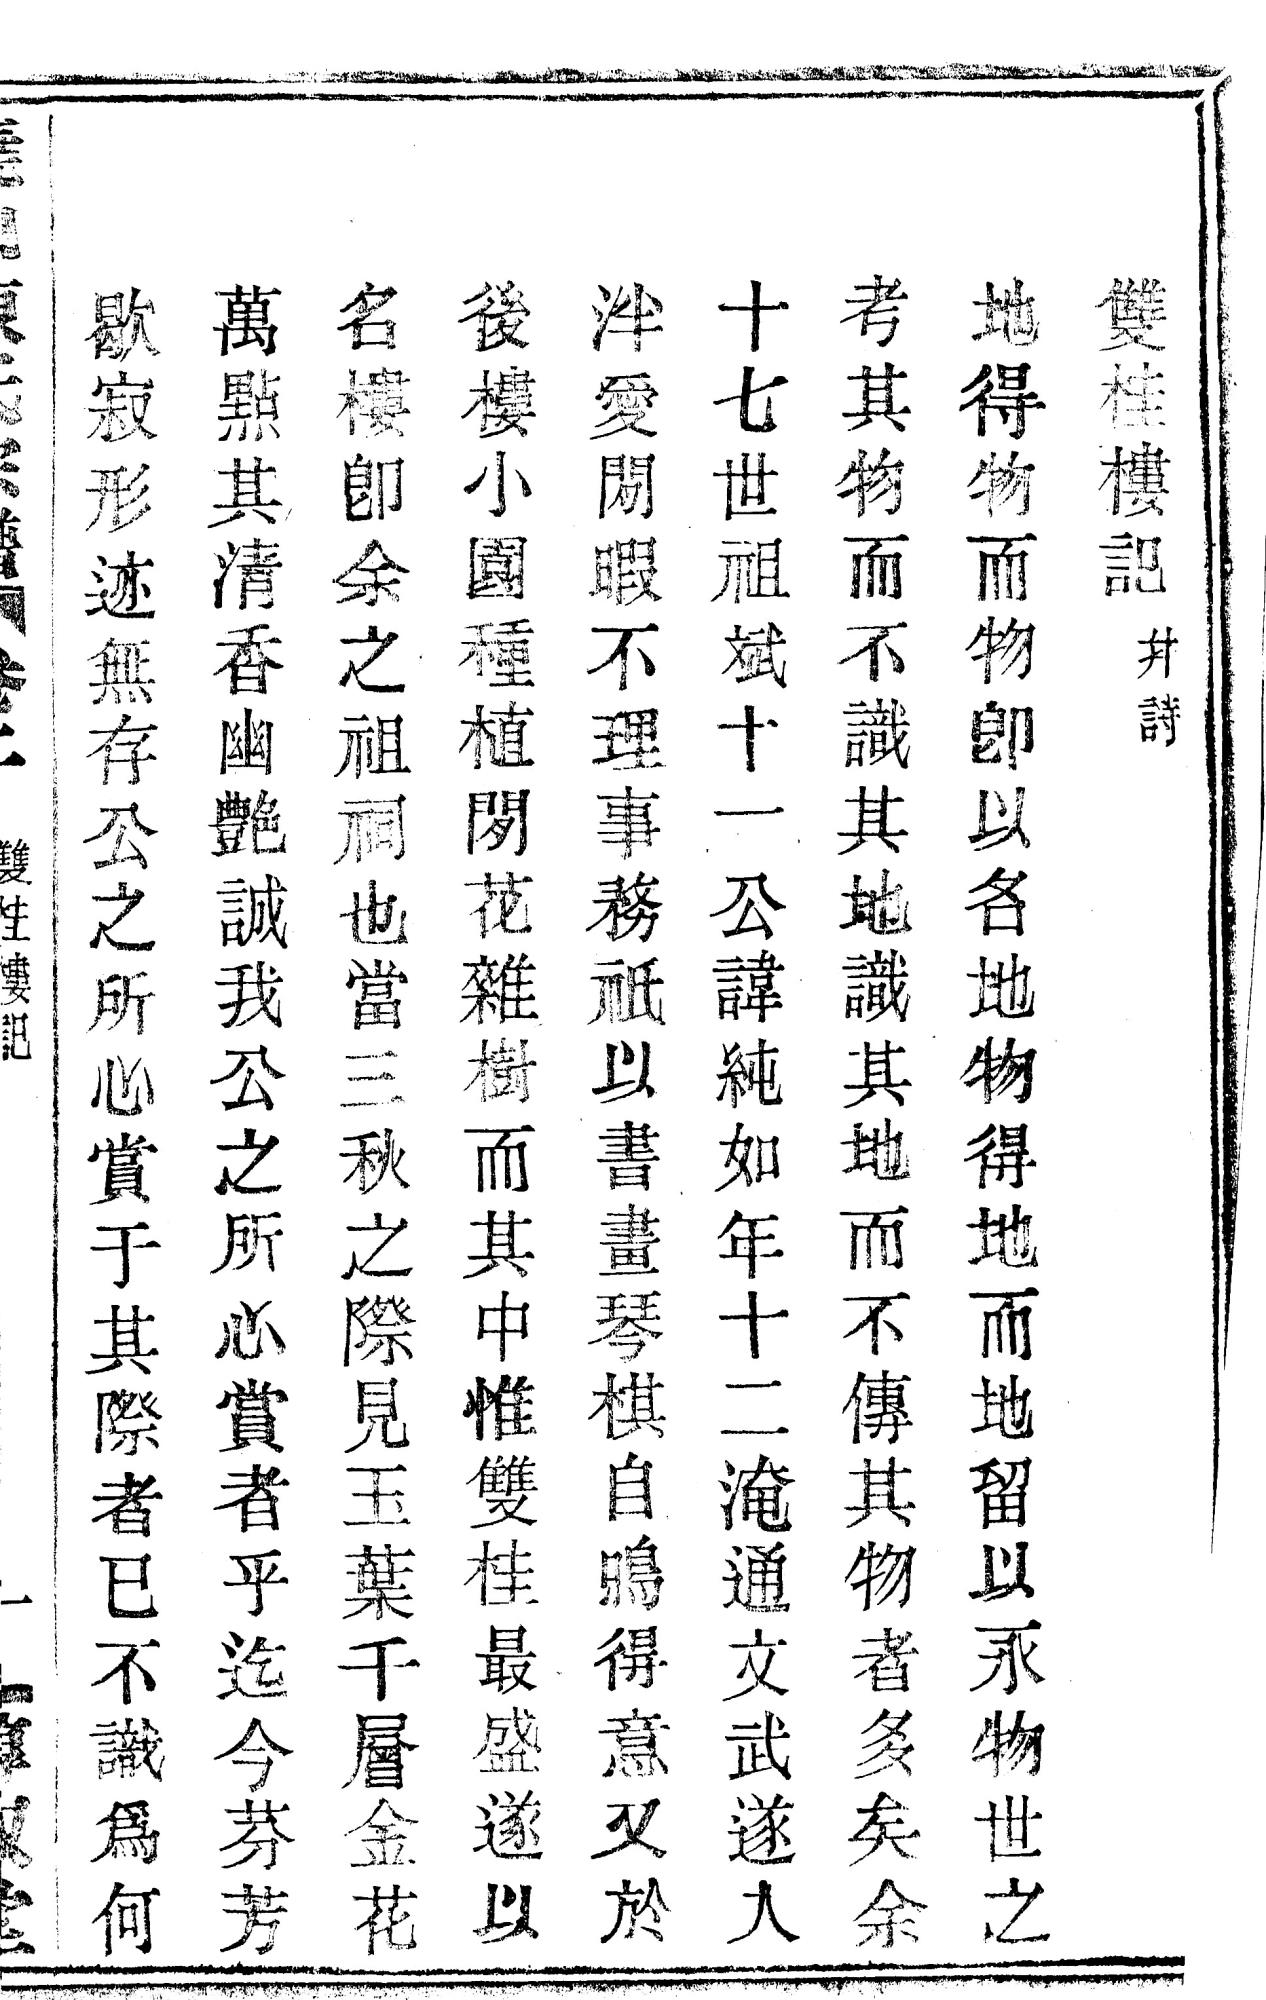 雙桂樓記 幷詩
地得物而物卽以名地物得地而地留以永物世之
考其物而不識其地識其地而不傳其物者多矣余
十七世祖斌十一公諱純如年十二淹通文武遂入
泮愛閒暇不理事務祇以書畫琴棋自鳴得意又於
後樓小園種植閒花雜樹而其中惟雙桂最盛遂以
名樓卽余之祖祠也當三秋之際見玉葉千層金花
萬點其清香幽艷誠我公之所心賞者乎迄今芬芳
歇寂形迹無存公之所心賞于其際者已不識爲何
雙桂樓記